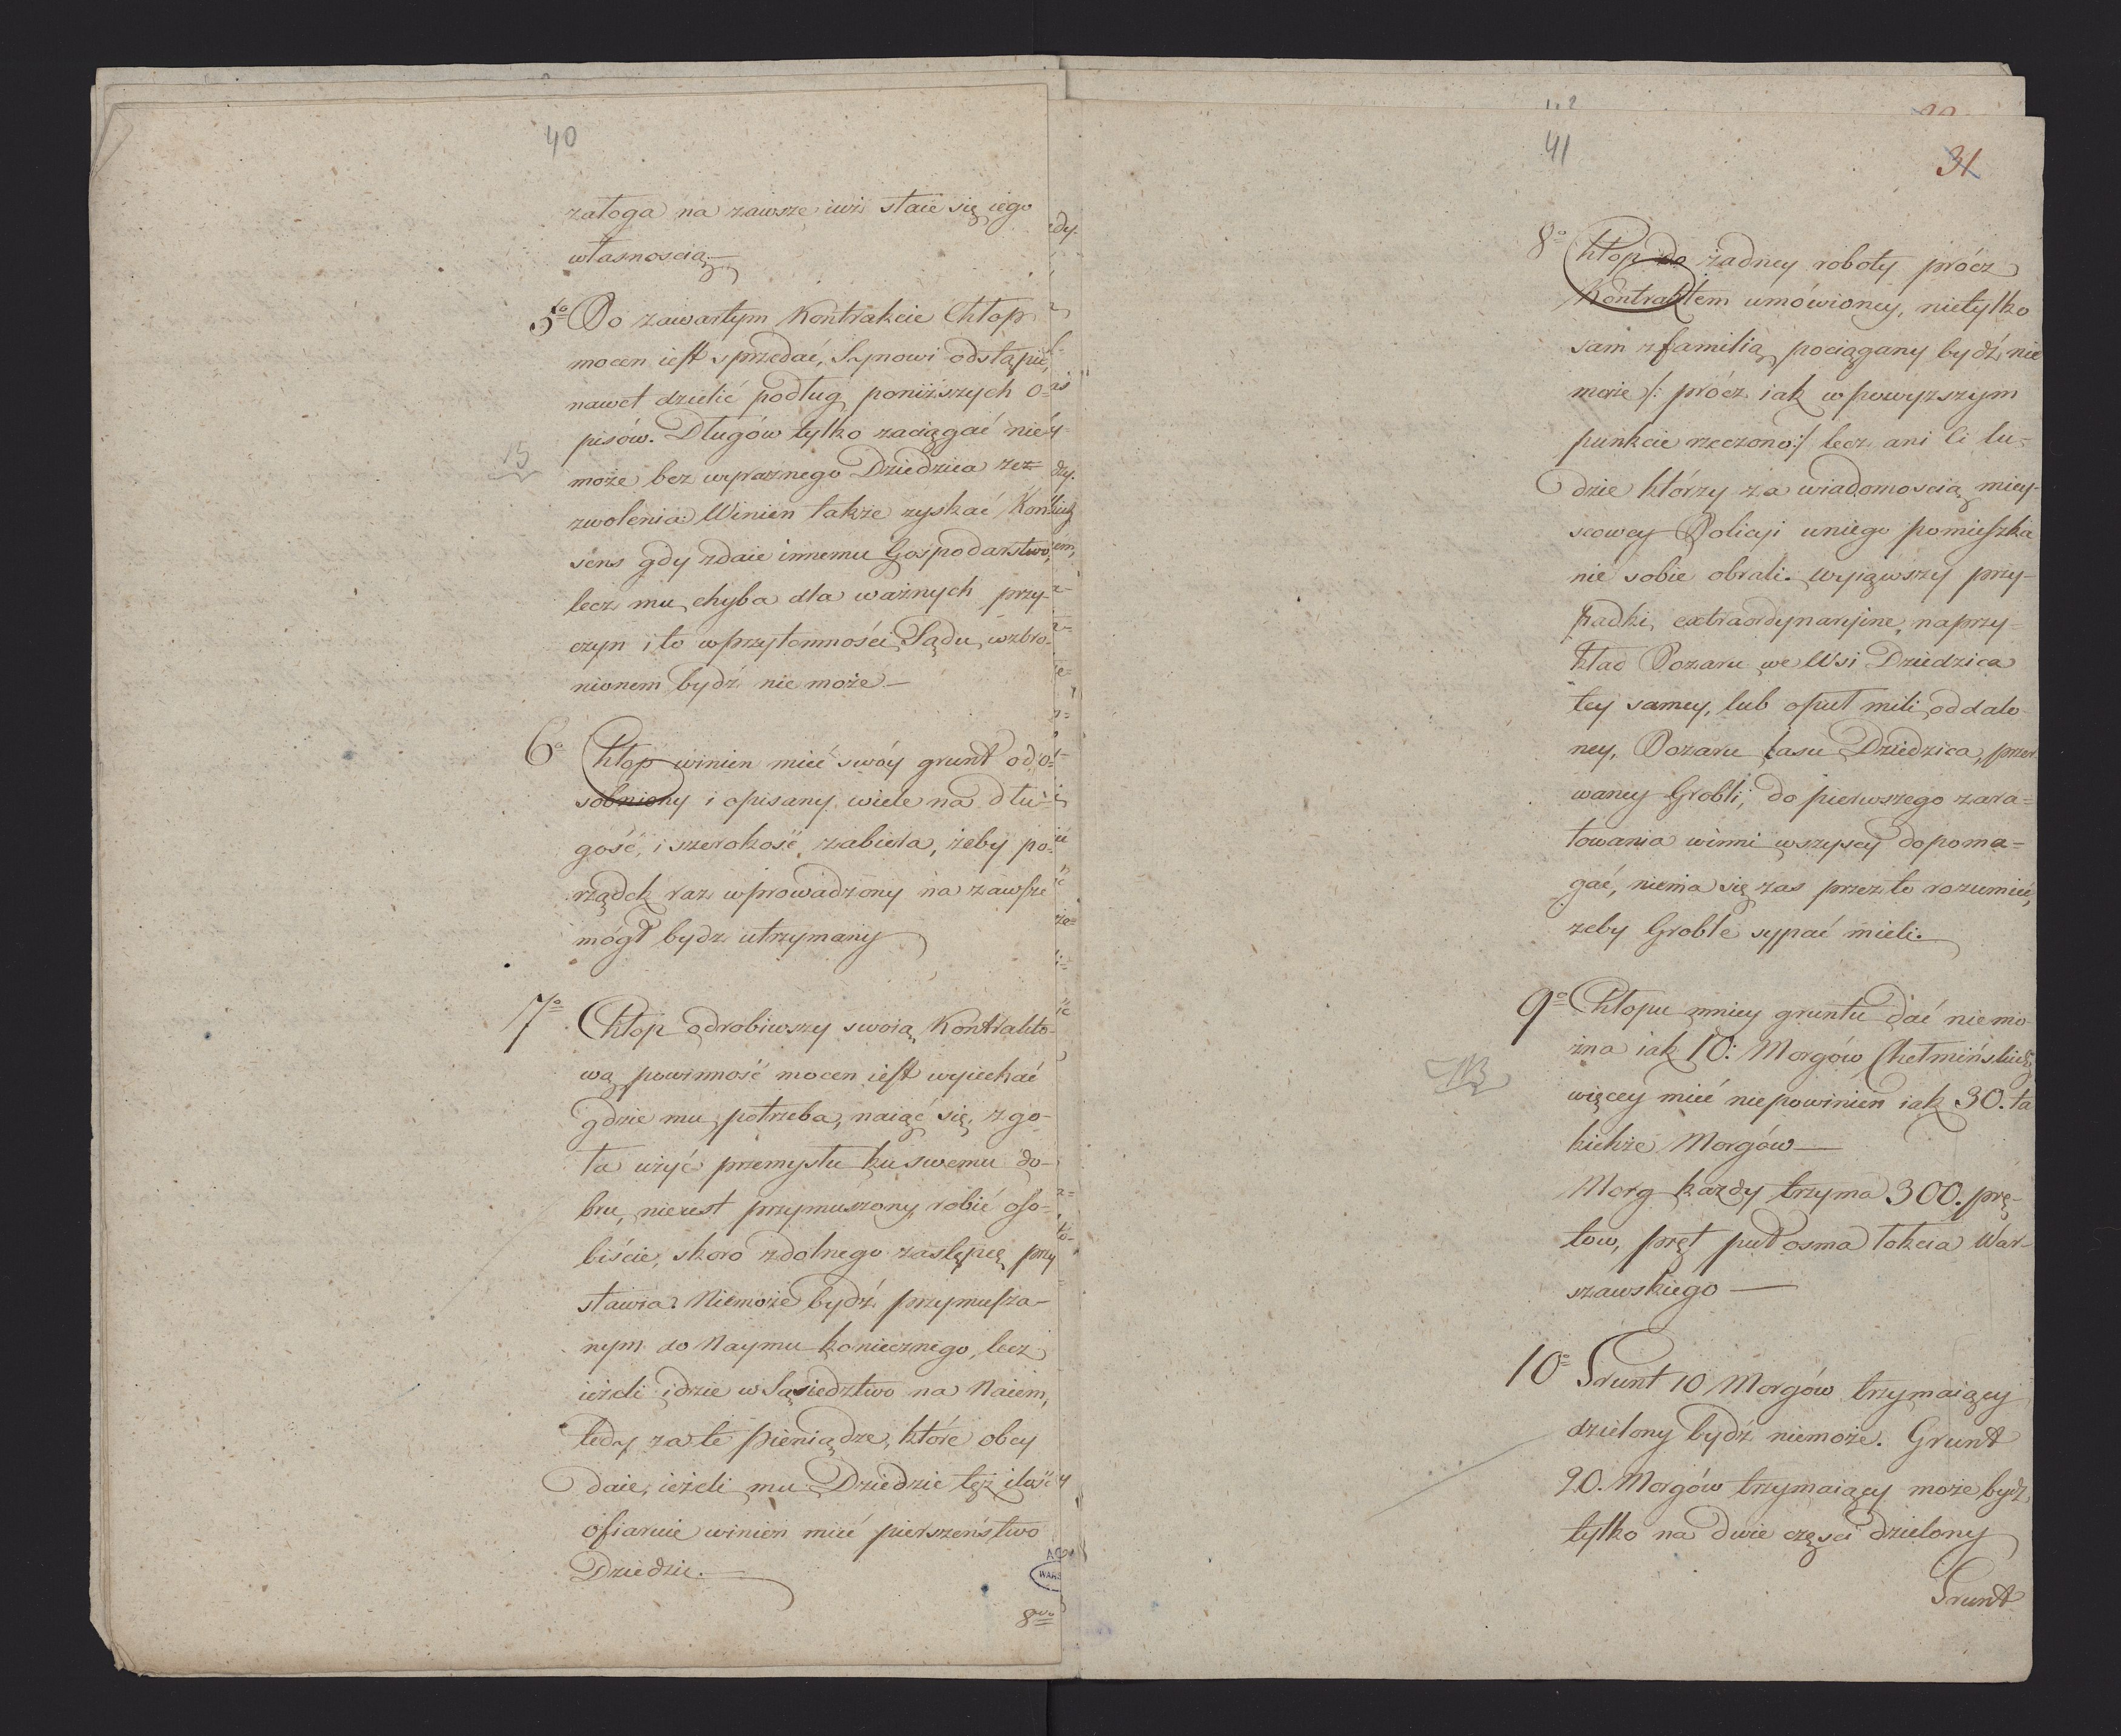 40
załoga na zawsze iuż staie się iego
własnoscią.
5to Po zawartym Kontrakcie Chłop
mocen iest sprzedać, Synowi odstąpić,
nawet dzielić podług poniższych o=
pisów. Długów tylko zaciągać nie
może bez wyraznego Dziedzica ze=
zwolenia. Winien także zyskać Kon=
sens gdy zdaie innemu Gospodarstwo,
lecz mu chyba dla ważnych przy-
czyn i to w przytomności Sądu, wzbro-
nionem bydź nie może.
6o Chłop winien mieć swóy grunt odo=
sobniony i opisany wiele na dłu=
gość, i szerokość zabiera, żeby po=
rządek raz wprowadzony na zawsze
mógł bydz utrzymany
7o Chłop odrobiwszy swoią Kontrakto-
wą powinność mocen iest wyiechać
gdzie mu potrzeba, naiąć się, zgo-
ła użyć przemysłu ku swemu do-
bru, nieiest przymuszony robić oso=
biście, skoro zdolnego zastępcę przy
stawia. Niemoże bydź przymusza-
nym do Naymu koniecznego, lecz
ieżeli idzie w Sąsiedztwo na Naiem,
tedy za te pieniądze, które obcy
daie, ieżeli mu Dziedzic tęż ilość
ofiaruie winien mieć pierszeństwo
Dziedzic.
8vo
41
31
8o Chłop do żadney roboty prócz
Kontraktem umówioney, nietylko
sam z familią pociągany bydź nie
może /: prócz iak w powyzszym
punkcie rzeczono:/ lecz ani Ci lu=
dzie którzy za wiadomoscią miey-
scowey Policyi uniego pomieszka
nie sobie obrali. Wyiąwszy przy-
padki extraordynaryine, naprzy=
kład Pozaru we Wsi Dziedzica
tey samey, lub o puł mili oddalo
ney, Pozaru lasu Dziedzica, przer
waney Grobli, do pierwszego zara=
towania winni wszyscy dopoma=
gać, niema się zas przez to rozumieć,
zeby Groble sypać mieli.
9o Chłopu mniey gruntu dać nie mo
żna iak 10: Morgów Chełmińskich,
więcey mieć nie powinien iak 30. ta
kichże Morgów
Morg każdy trzyma 300. prę-
tow, pręt puł osma łokcia War-
szawskiego
10o Grunt 10 Morgów trzymaiący
dzielony bydź niemoże. Grunt
20. Morgów trzymaiący może bydz
tylko na dwie częsci dzielony
Grunt